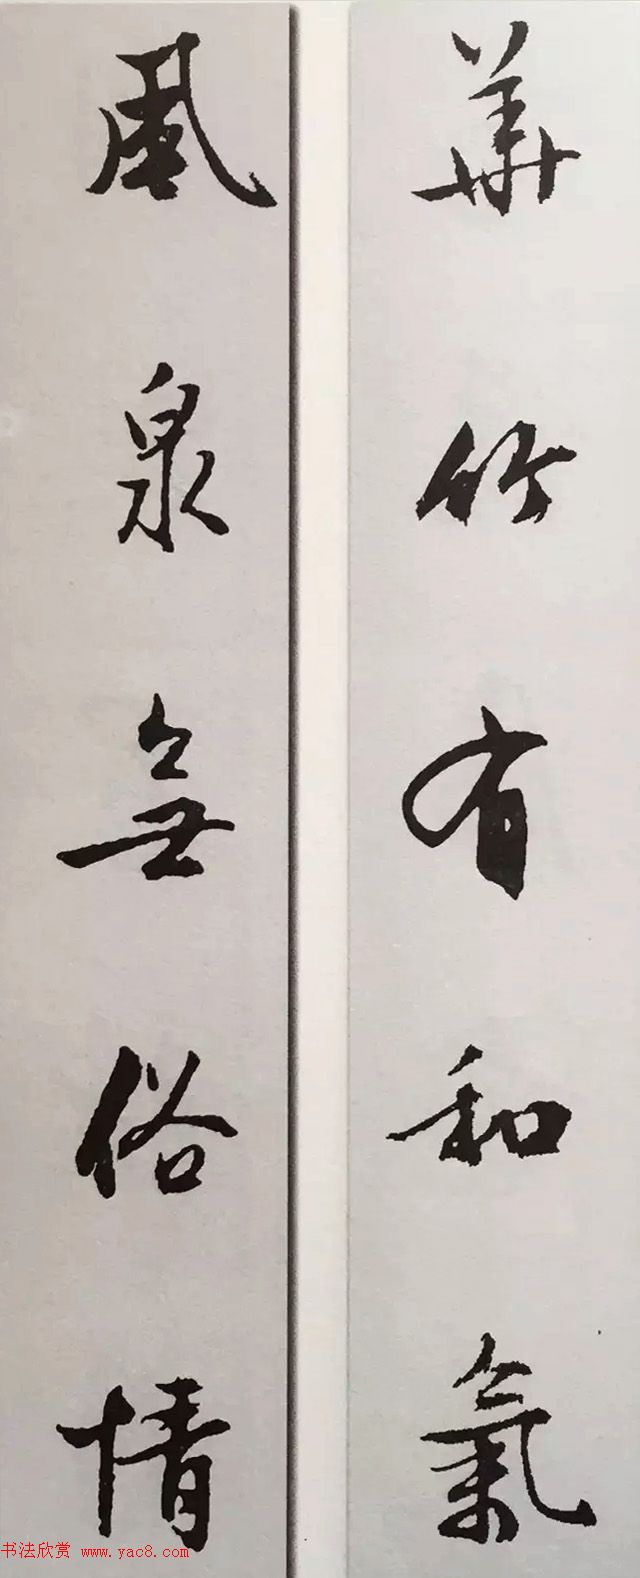 華竹有和氣
風泉無俗情
书法欣赏 www.yac8.com